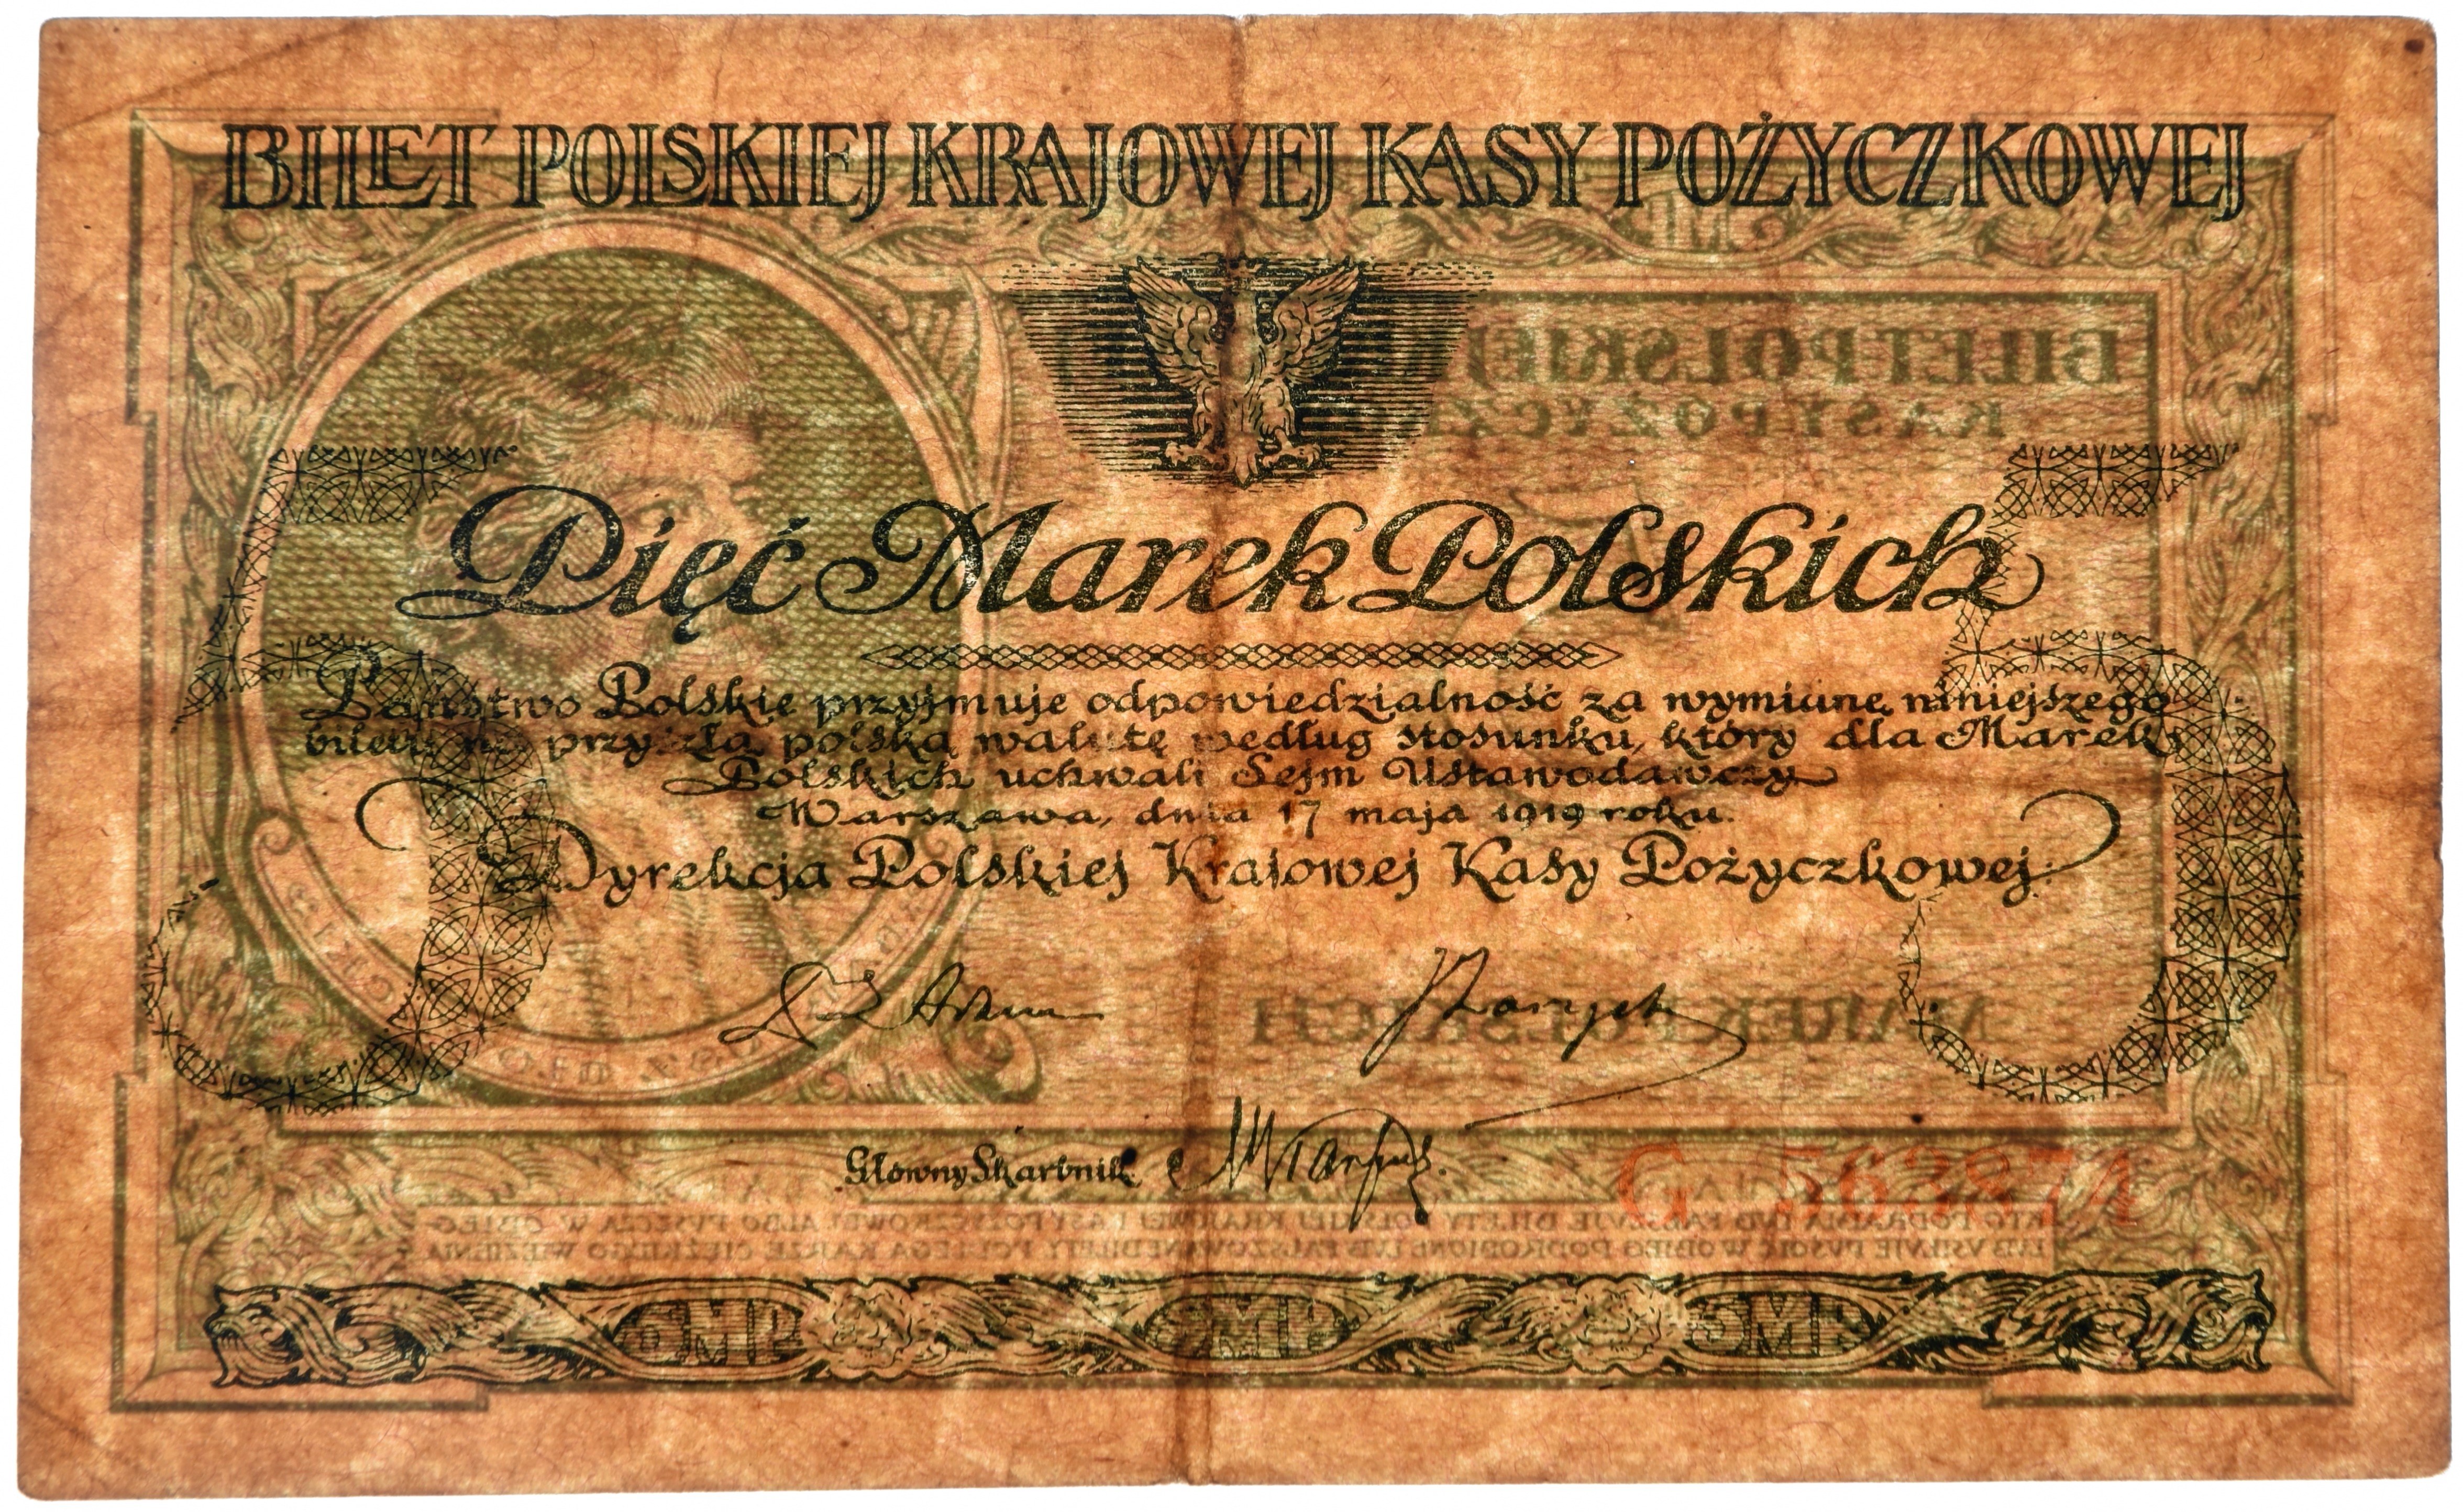 BILET POLSKIEJ KRAJOWEJ KASY POŻYCZKOWEJ
BILET POLSKIEJ
KASY POŻYCZ
5 5
Pięć Marek Polskich
Państwo Polskie przyjmuje odpowiedzialność za wymianę niniejszego
biletu na przyszłą polską walutę według stosunku, który dla Marek
Polskich uchwali Sejm Ustawodawczy
Warszawa, dnia 17 maja 1919 roku.
Dyrekcja Polskiej Krajowej Kasy Pożyczkowej.
MAREK POLSKICH
Główny Skarbnik
G 563874
KTO PODRABIA LUB FAŁSZUJE BILETY POLSKIEJ KRAJOWEJ KASY POŻYCZKOWEJ ALBO PUSZCZA W OBIEG
LUB USIŁUJE PUŚCIĆ W OBIEG PODROBIONE LUB FAŁSZOWANE BILETY PODLEGA KARZE CIĘŻKIEGO WIĘZIENIA
5MP 5MP 5MP